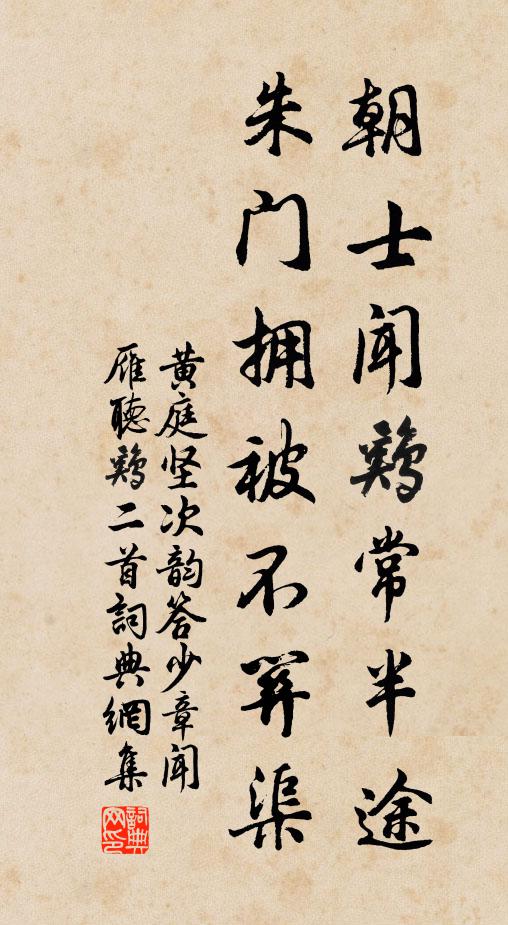 朝士闻鷄常半途
朱门拥被不关渠
黄庭坚次韵答少章闻
雁聽鷄二首詞典網集
詞典
网印